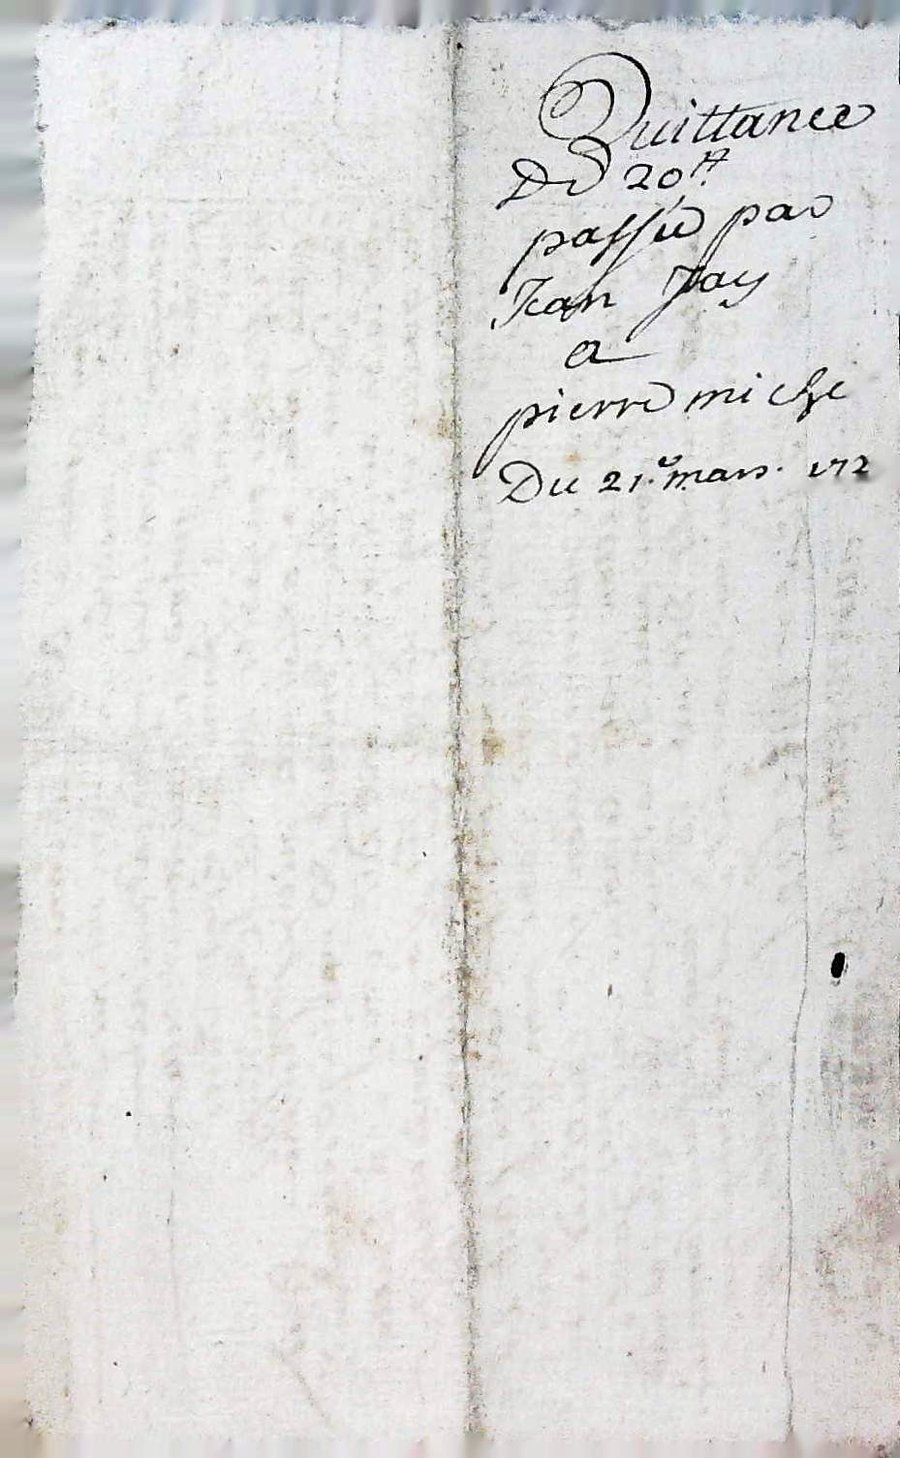 Quittance
De 20 ₶
passée par
Jean Jay
a
pierre miche
Du 21.e mars. 172